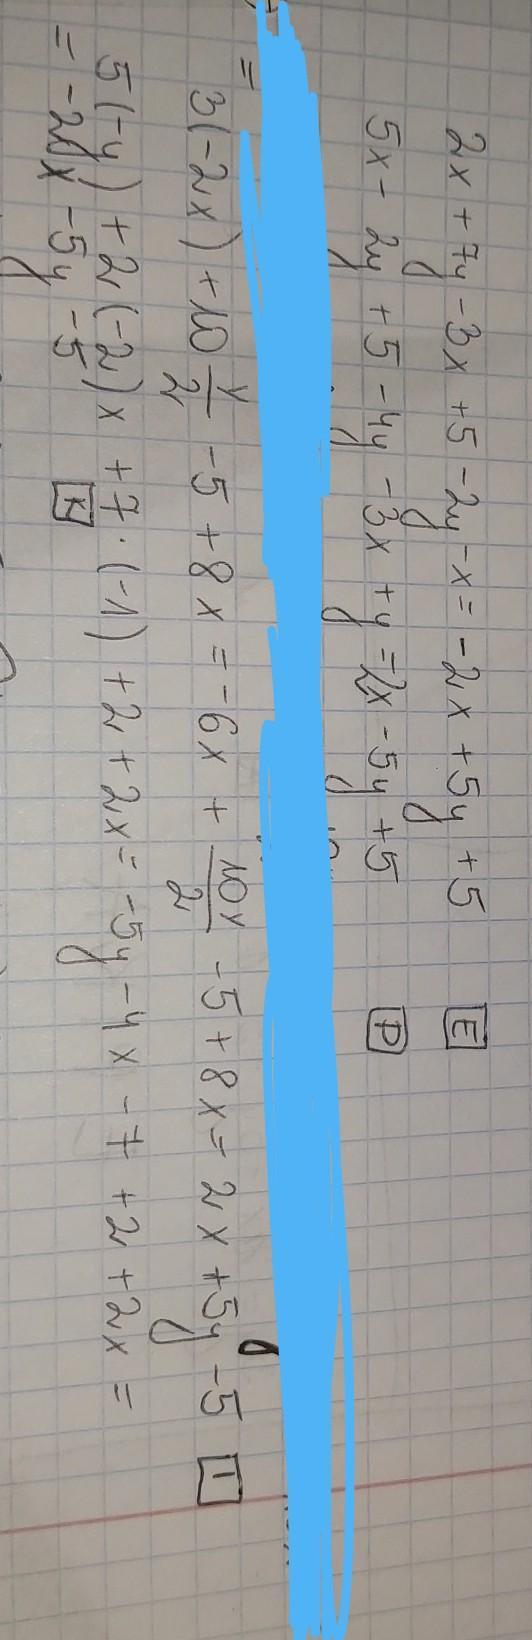 2x + 7y - 3x + 5 - 2y - x = -2x + 5y + 5 E
5x - 2y + 5 - 4y - 3x + y = 2x - 5y + 5 P
=
3(-2x) + 10 y/2 - 5 + 8x = -6x + 10y/2 - 5 + 8x = 2x + 5y - 5 I
5(-y) + 2(-2)x + 7·(-1) + 2 + 2x = -5y - 4x - 7 + 2 + 2x =
= -2x - 5y - 5 K